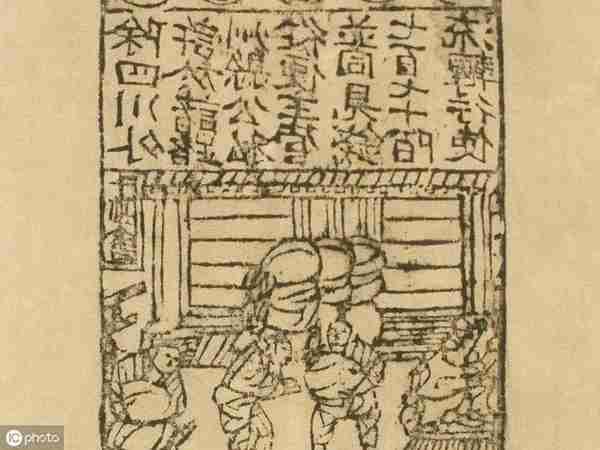 除四川外
許於諸路
州縣公私
從便主管
並同見錢
七百七十陌
流轉行使
iC photo